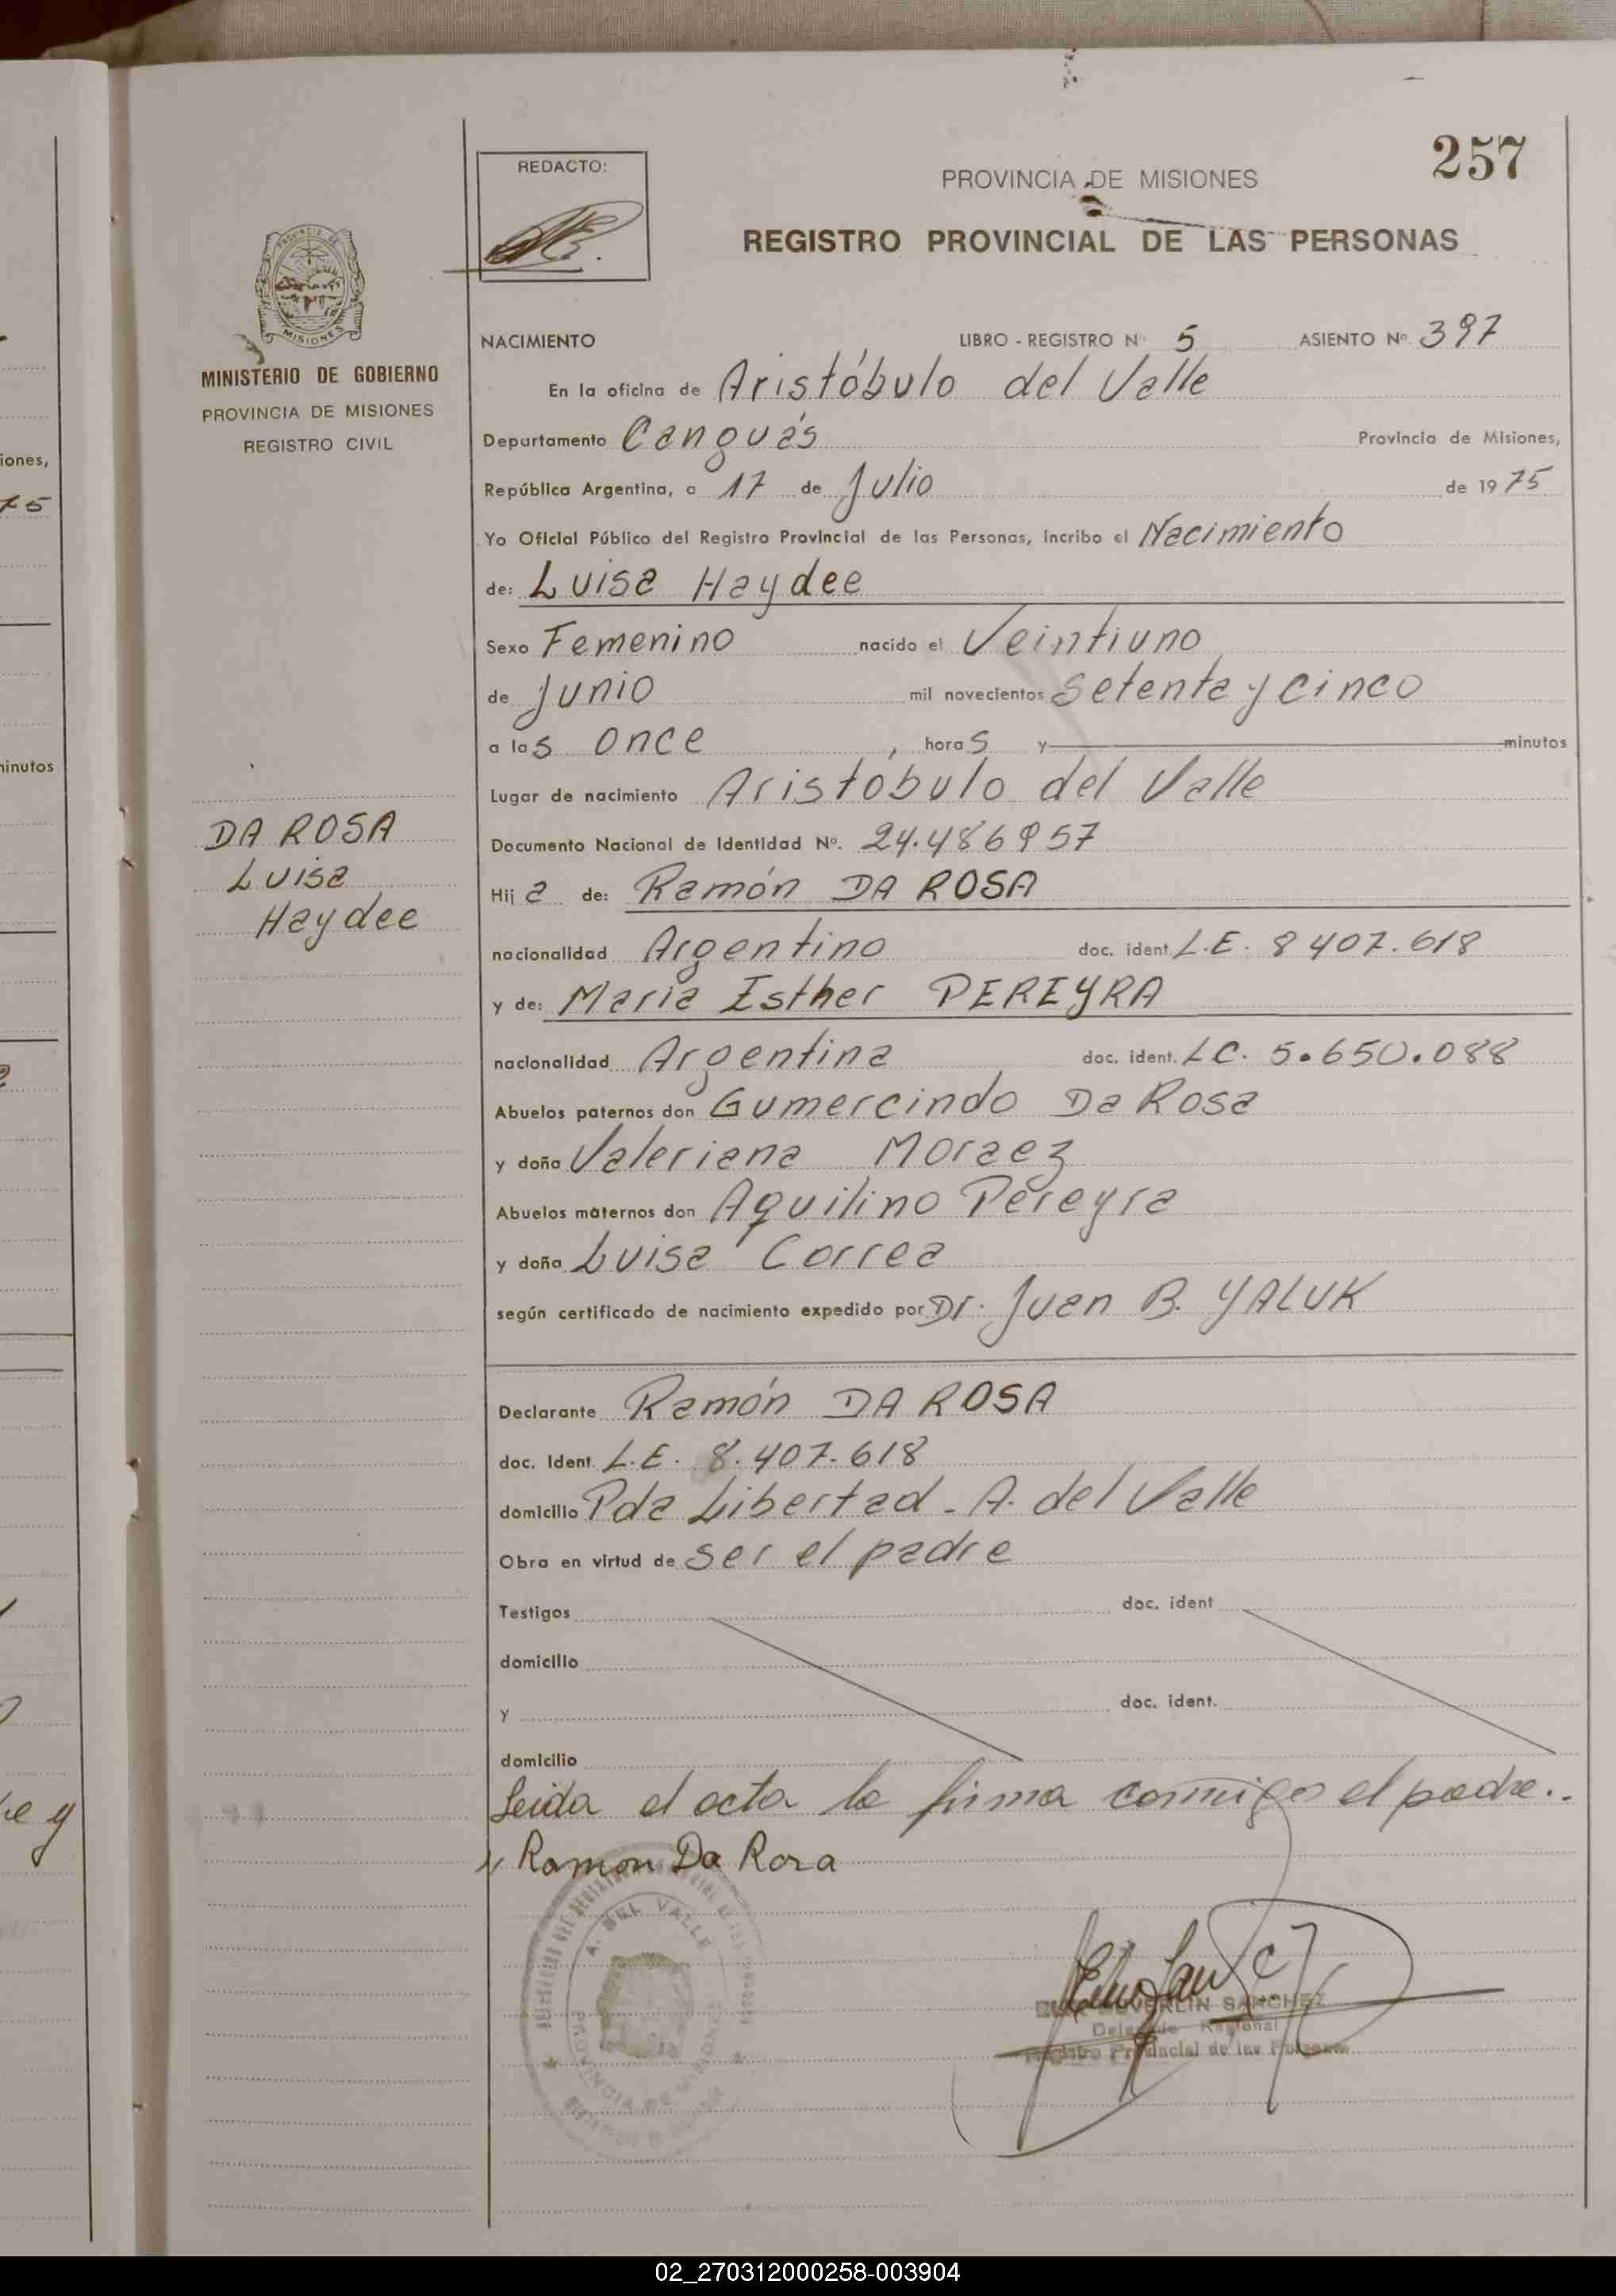 257
REDACTO:
PROVINCIA DE MISIONES
REGISTRO PROVINCIAL DE LAS PERSONAS
PROVINCIA DE
MISIONES
MINISTERIO DE GOBIERNO
PROVINCIA DE MISIONES
REGISTRO CIVIL
NACIMIENTO LIBRO - REGISTRO Nº 5 ASIENTO Nº 397
En la oficina de Aristóbulo del Valle
Departamento Canguás Provincia de Misiones,
República Argentina, a 17 de Julio de 1975
Yo Oficial Público del Registro Provincial de las Personas, incribo el Nacimiento
de: Luisa Haydee
Sexo Femenino nacido el Veintiuno
de Junio mil novecientos Setenta y cinco
a las once, horas y minutos
Lugar de nacimiento Aristóbulo del Valle
DA ROSA
Luisa
Haydee
Documento Nacional de Identidad Nº. 24.486957
Hija de: Ramón DA ROSA
nacionalidad Argentino doc. ident. L.E. 8407.618
y de: Maria Esther PEREYRA
nacionalidad Argentina doc. ident. LC. 5.650.088
Abuelos paternos don Gumercindo Da Rosa
y doña Valeriana Moraez
Abuelos maternos don Aquilino Pereyra
y doña Luisa Correa
según certificado de nacimiento expedido por Dr. Juan B. YALUK
Declarante Ramón DA ROSA
doc. Ident. L.E. 8.407.618
domicilio Pda Libertad - A. del Valle
Obra en virtud de ser el padre
Testigos doc. ident
domicilio
y doc. ident.
domicilio
Leida el acta la firma conmigo el padre..
x Ramon Da Rosa
A. DEL VALLE
PROVINCIA DE MISIONES
SANCHEZ
Delegado Regional
Registro Provincial de las Personas
iones,
75
minutos
02_270312000258-003904